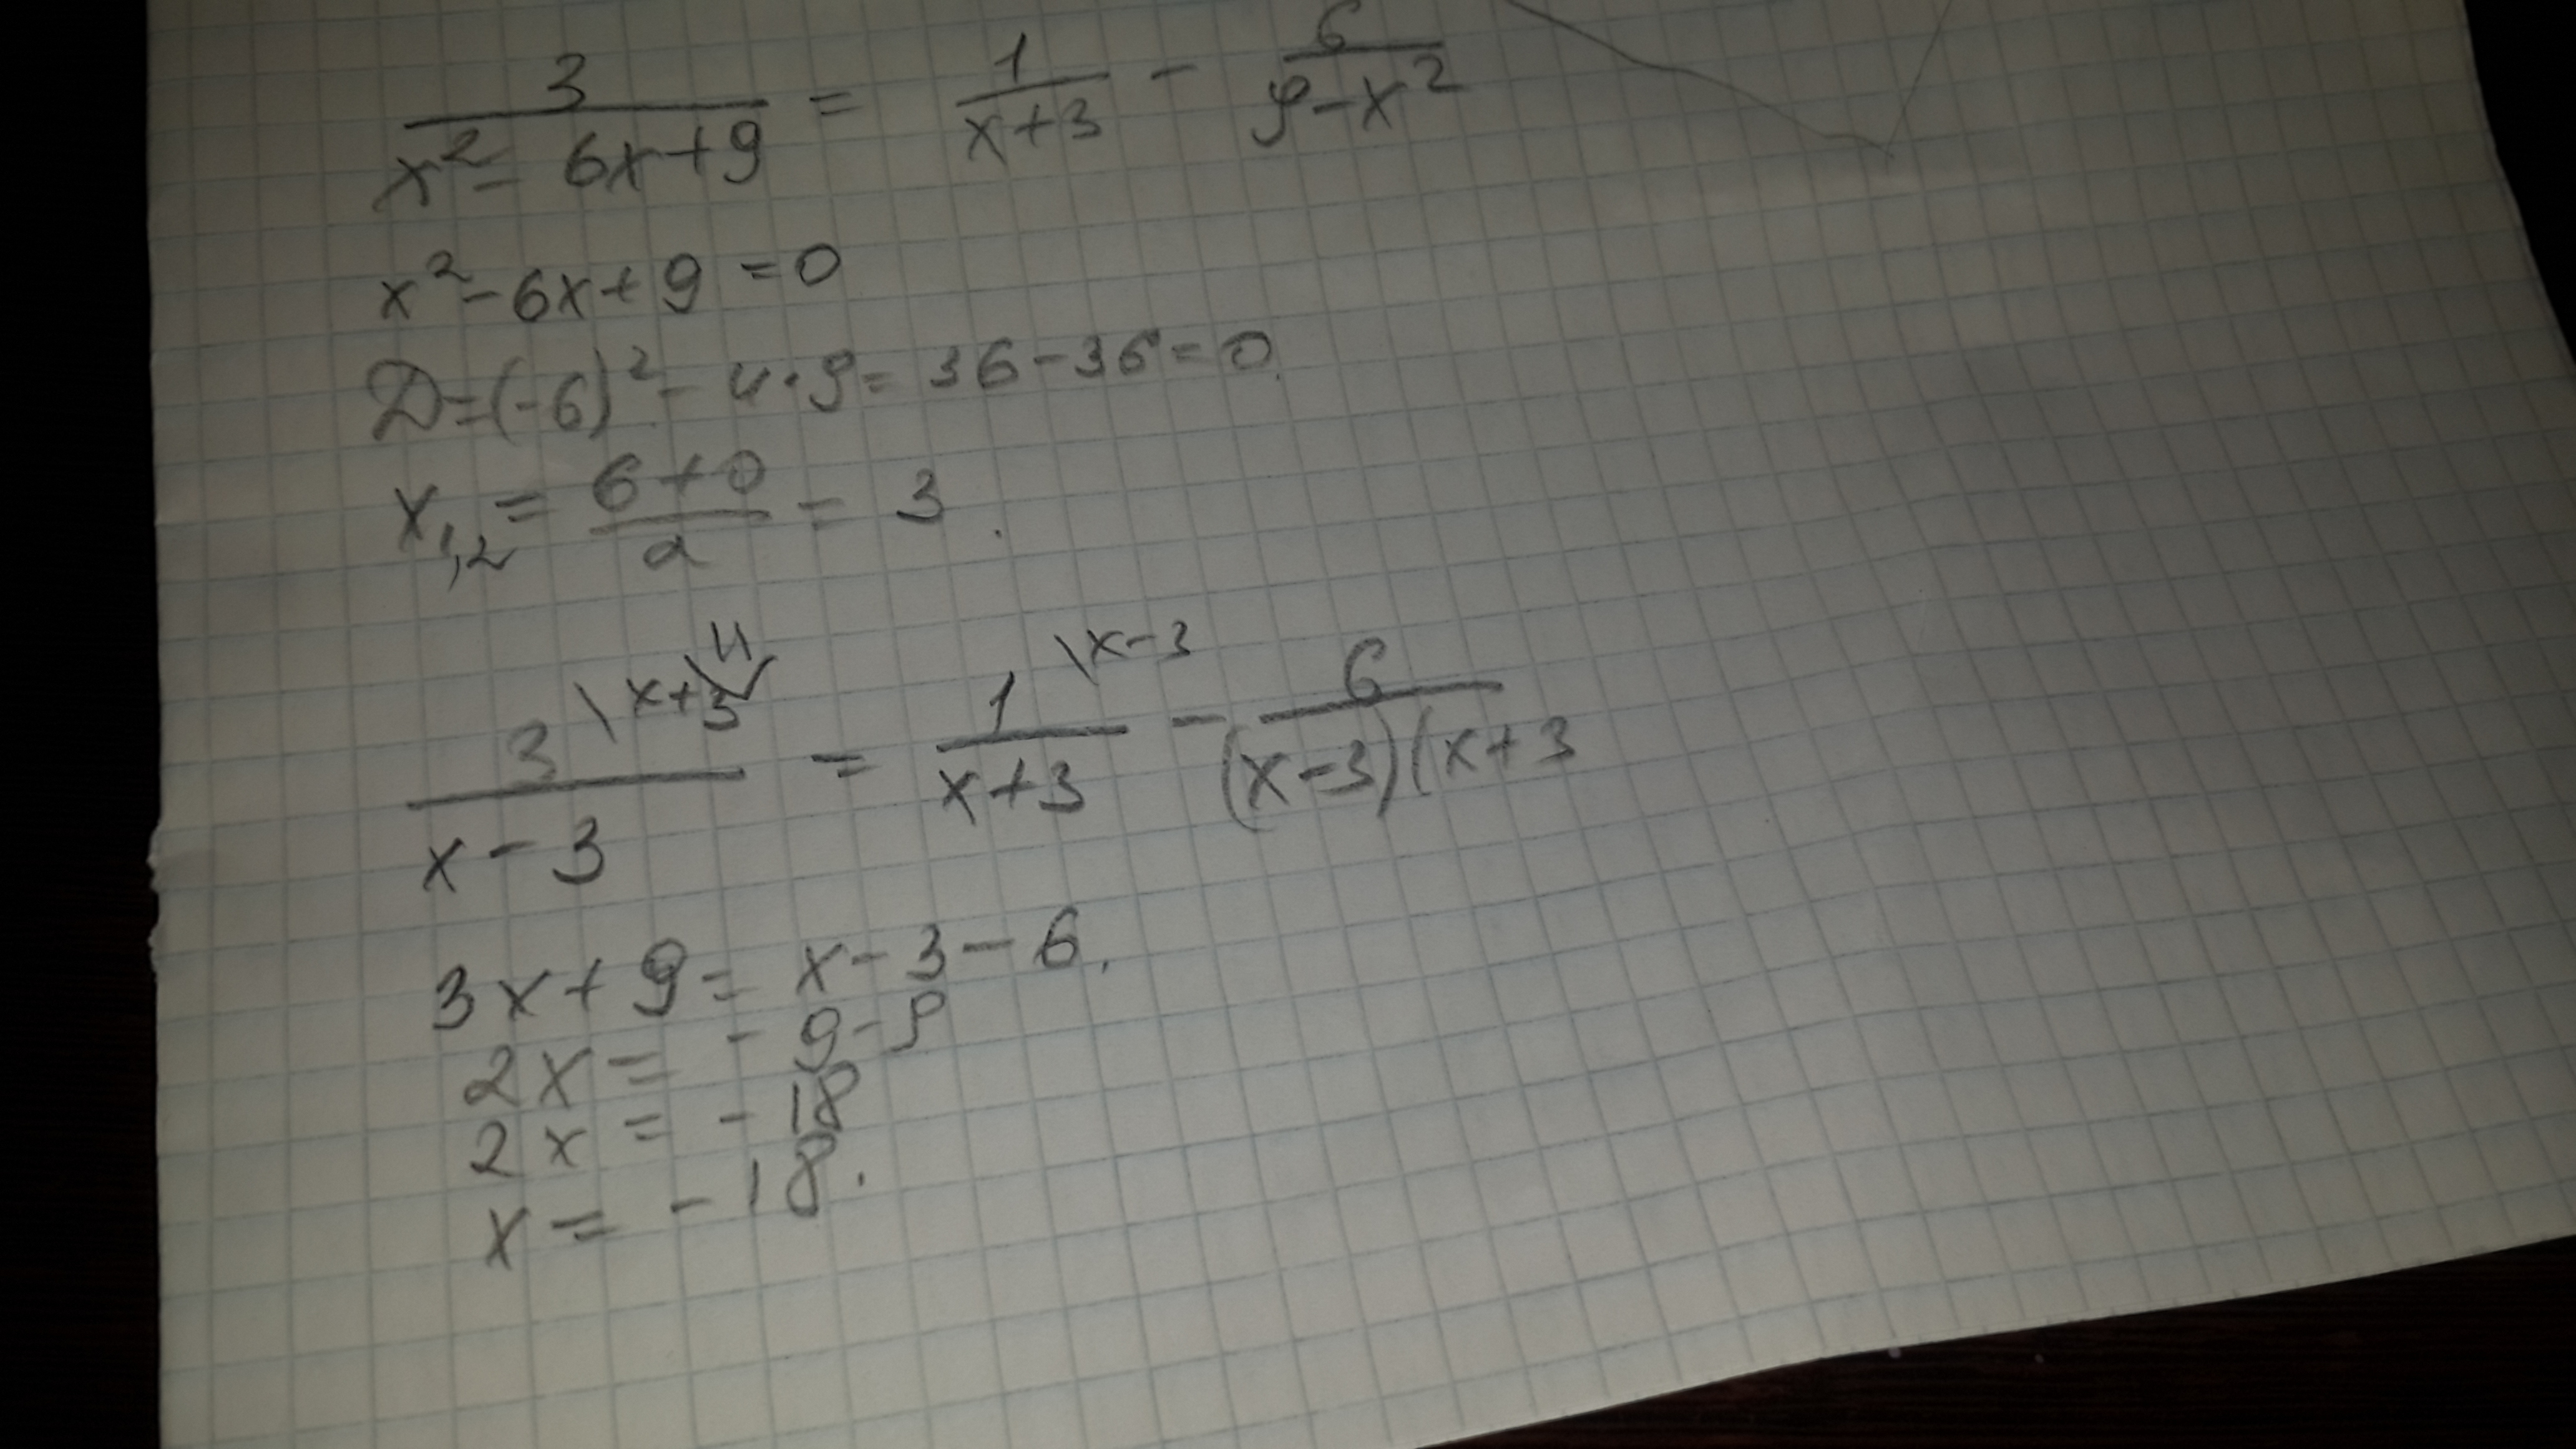 3/(x² - 6x + 9) = 1/(x+3) - 6/(9-x²)
x² - 6x + 9 = 0
D = (-6)² - 4·9 = 36 - 36 = 0.
x₁,₂ = (6+0)/2 = 3.
3\x+3/(x-3) = 1\x-3/(x+3) - 6/(x-3)(x+3
3x + 9 = x - 3 - 6.
2x = -9-9
2x = -18
x = -18.